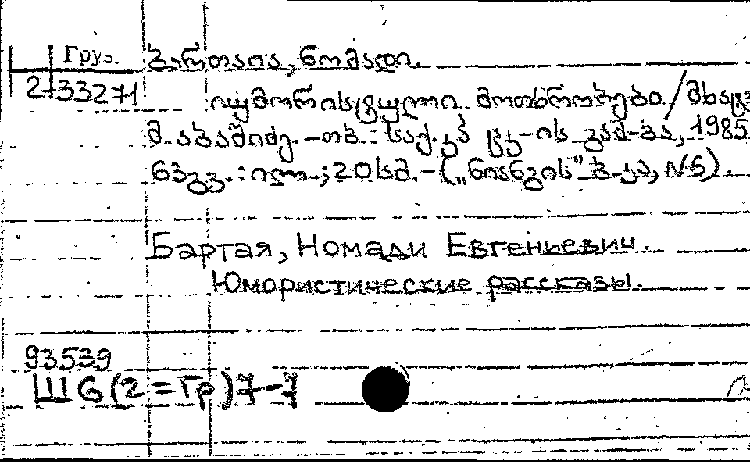 Груз. ბართაია, ნომადი.
2-33271
იუმორისტული მოთხრობები / მხატვ.
მ. აბაშიძე. - თბ.: საქ. კპ ცკ-ის გამ-ბა, 1985
63 გვ.: ილ.; 20 სმ. - („ნიანგის" ბ-კა, №5).
Бартая, Номади Евгениевич.
Юмористические рассказы.
93539
Ш6(2=Гр)7-7